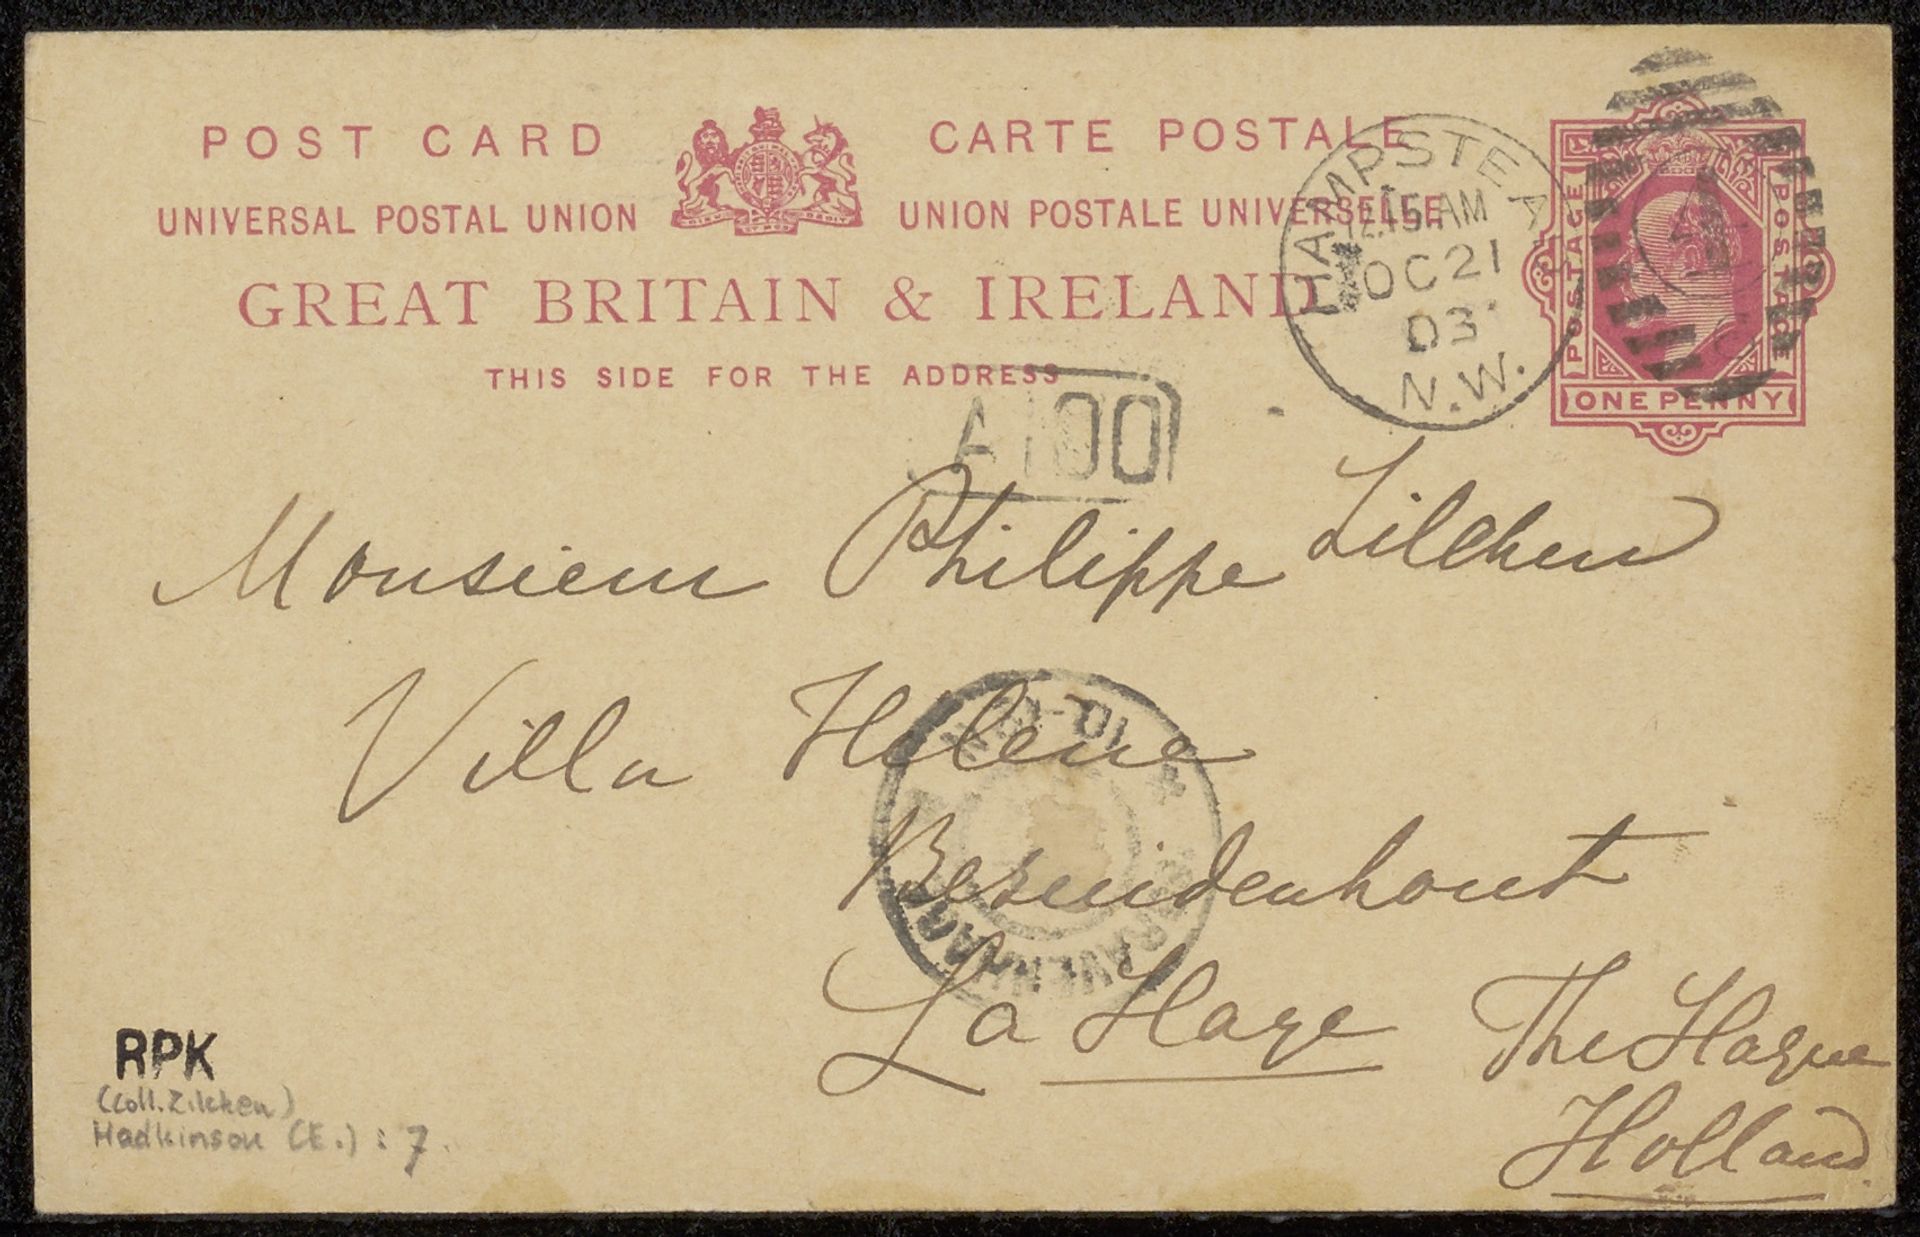 POST CARD
CARTE POSTALE
UNIVERSAL POSTAL UNION
UNION POSTALE UNIVERSELLE
GREAT BRITAIN & IRELAND
THIS SIDE FOR THE ADDRESS
HAMPSTEA
12.15.AM
OC 21
03
N.W.
POSTAGE
POSTAGE
ONE PENNY
A 100
Monsieur Philippe Zilcken
Villa Hélène
Bezuidenhout
La Haye The Hague
Holland
GRAVENHAGE
RPK
(coll. Zilcken)
Hadkinson (E.) : 7.